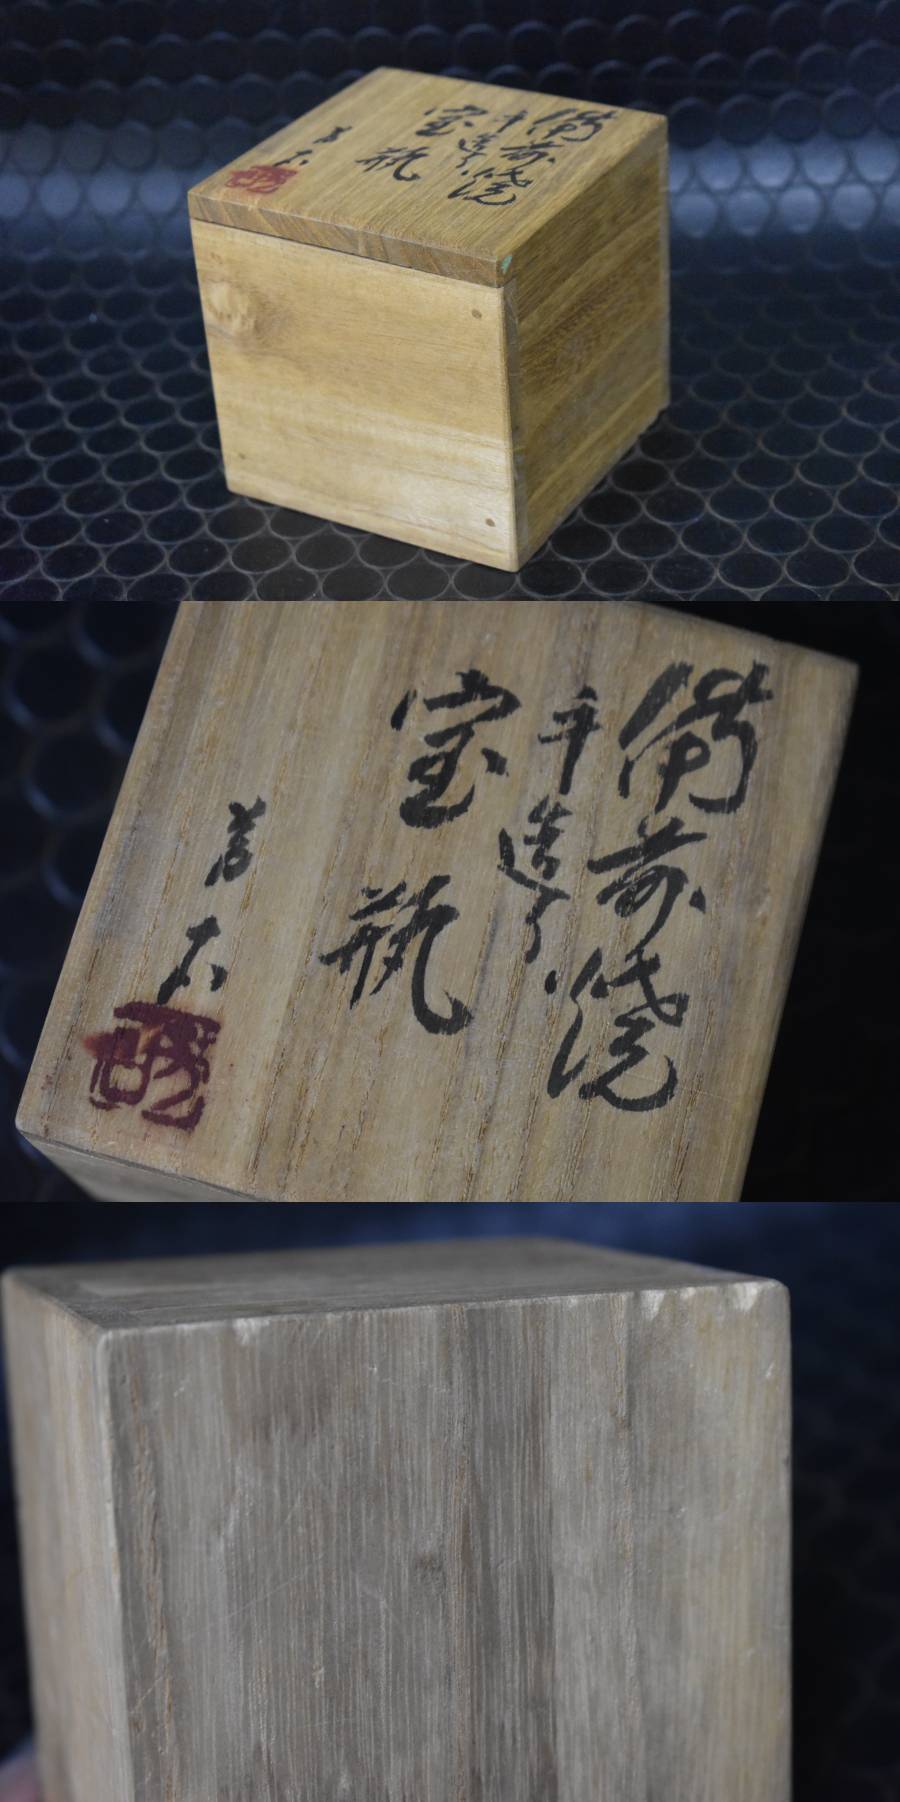 備前焼
手造り
宝瓶
備前焼
手造り
宝瓶